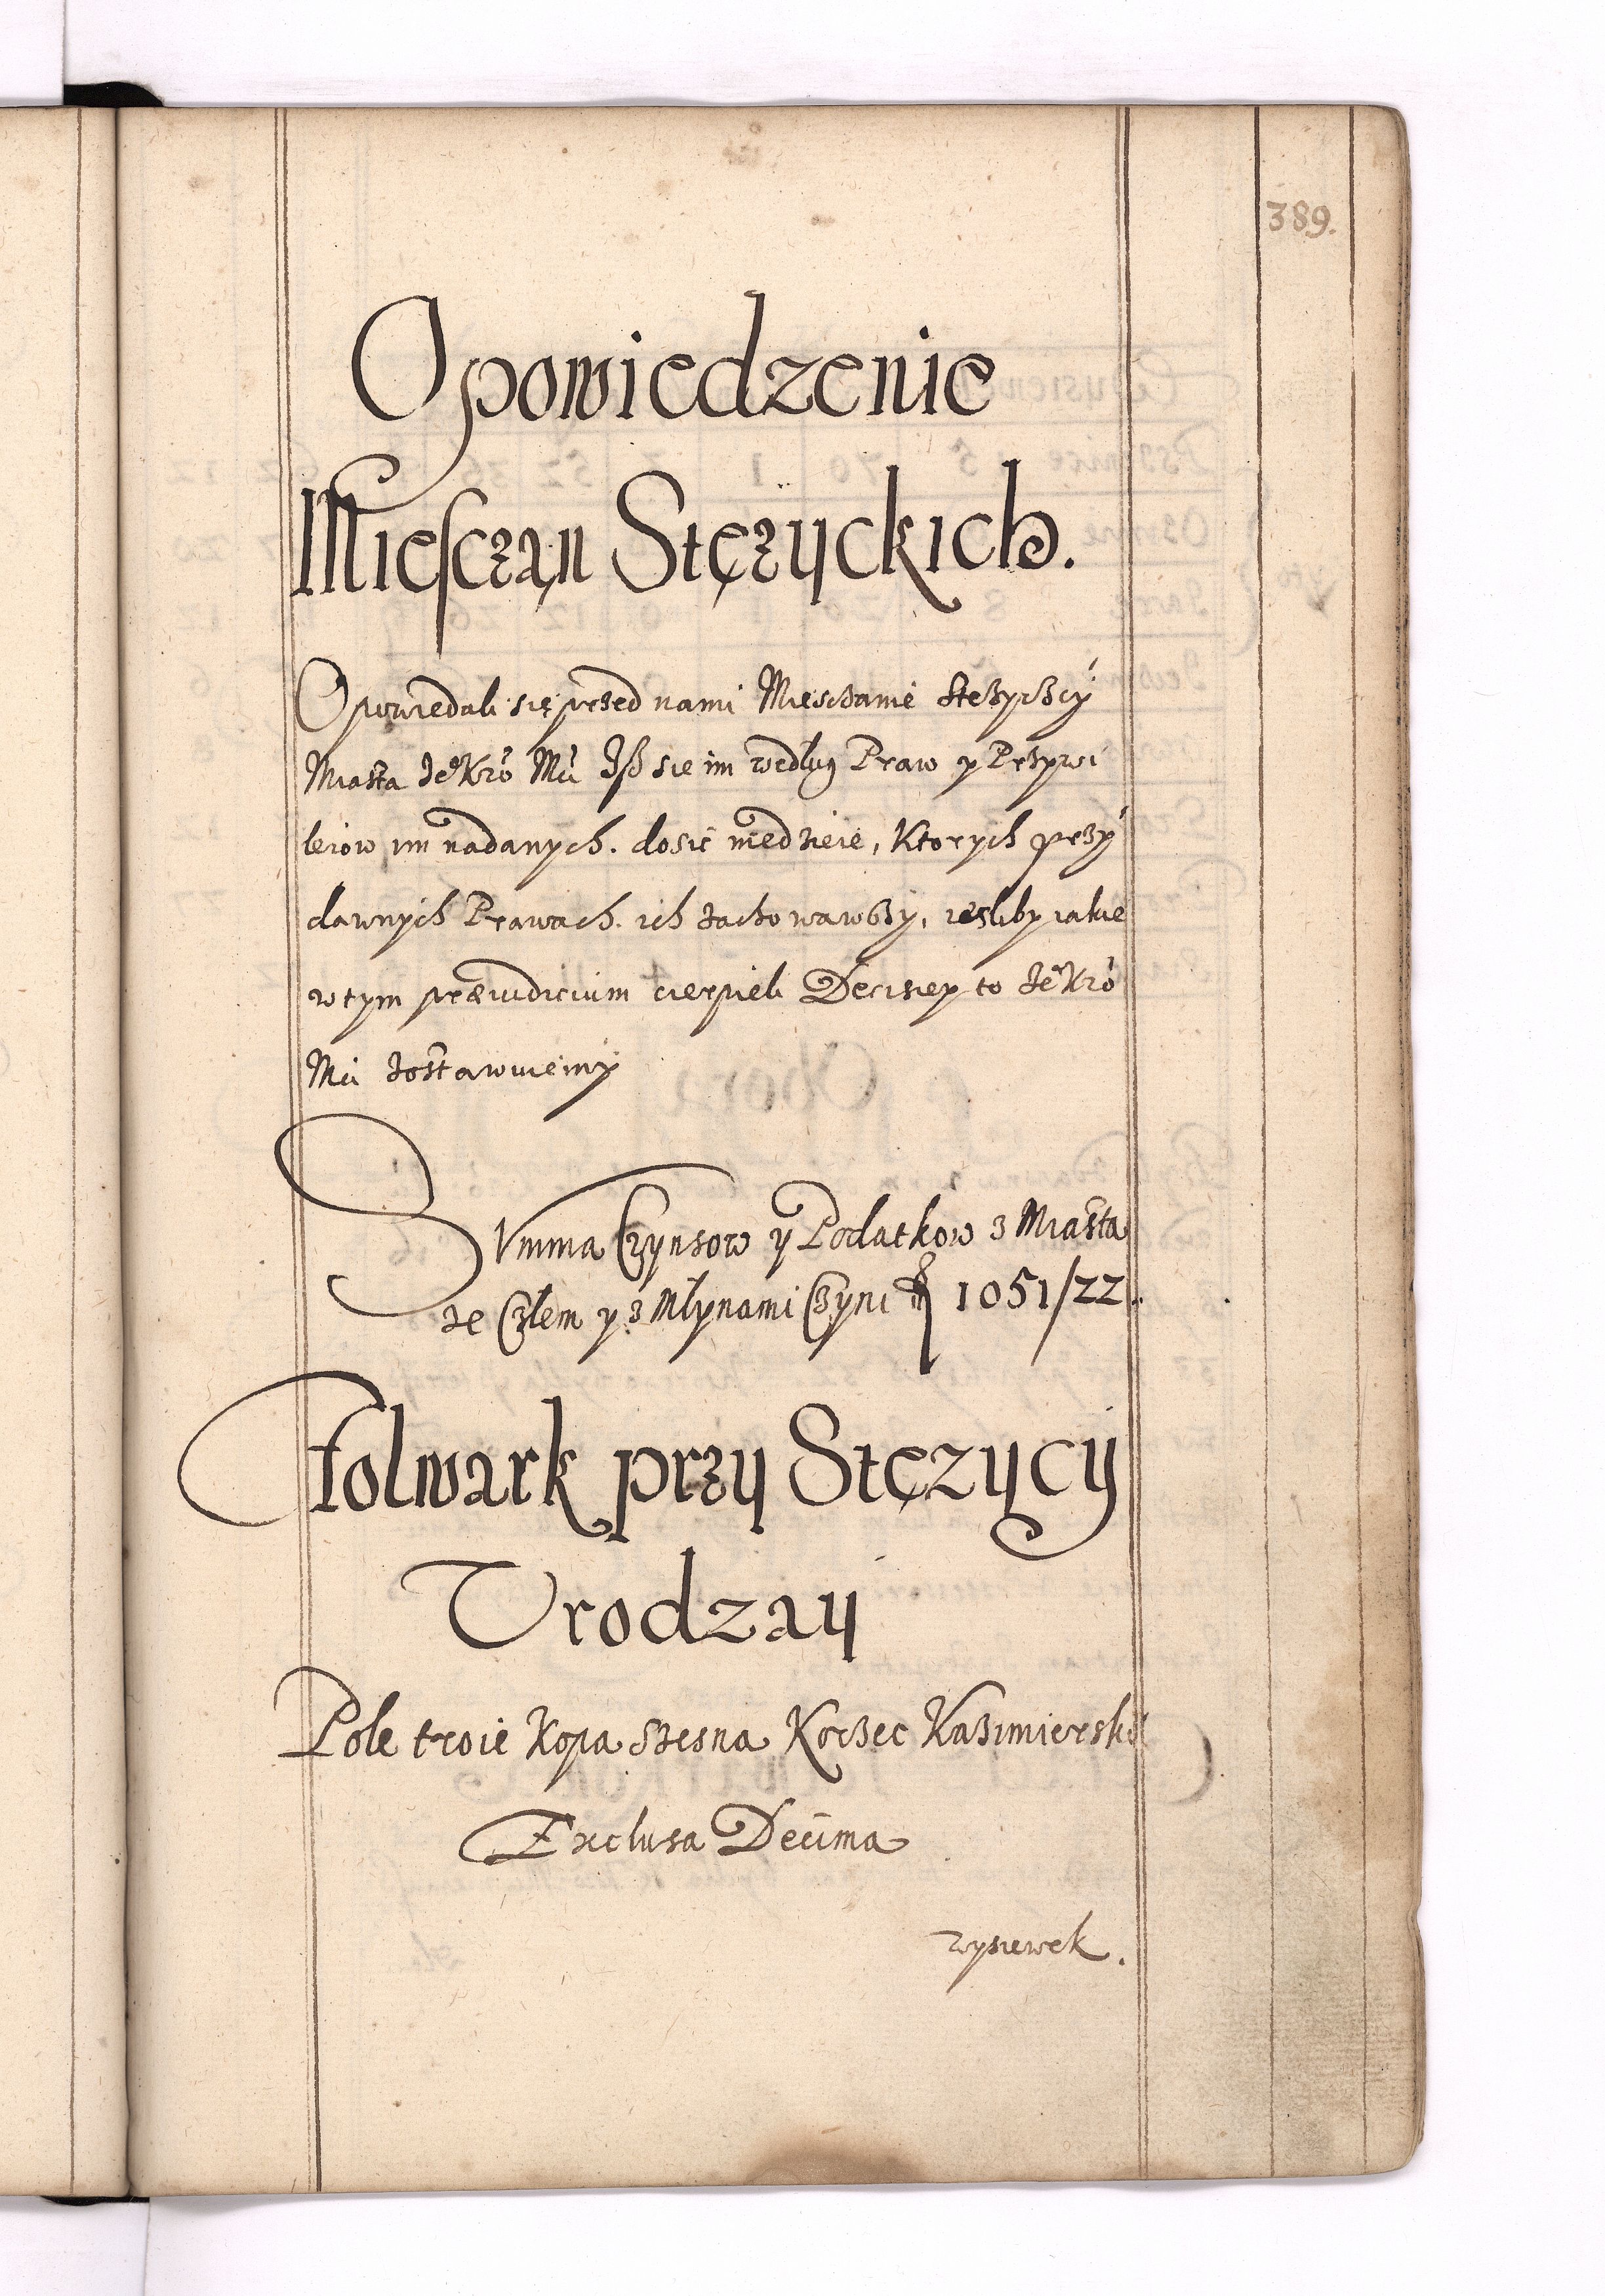 389.
Opowiedzenie
Miesczan Stęzyckich.
Opowiedali się przed nami Miesczanie Stezyczcy
Miasta Je° Kró Mći Jsz sie im według Praw y Przywi
leiow im nadanych. dosić niedzieie, Ktorych przy
dawnych Prawach. ich zachowawszy, iesliby iakie
w tym præiudicium cierpieli Decisiey to Je° Kró
Mći zostawuiemy
Summa Czynsow y Podatkow z Miasta
ze Czlem y z Młynami Czyni fl 1051/22.
Folwark przy Stęzycy
Vrodzay
Pole troie Kopa Szesna Korzec Kazimierski
Exclusa Decima
wysiewek.